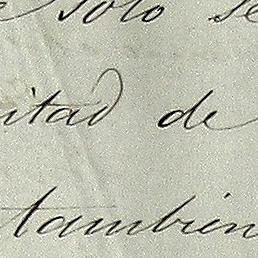 e solo se
itad de
tambien